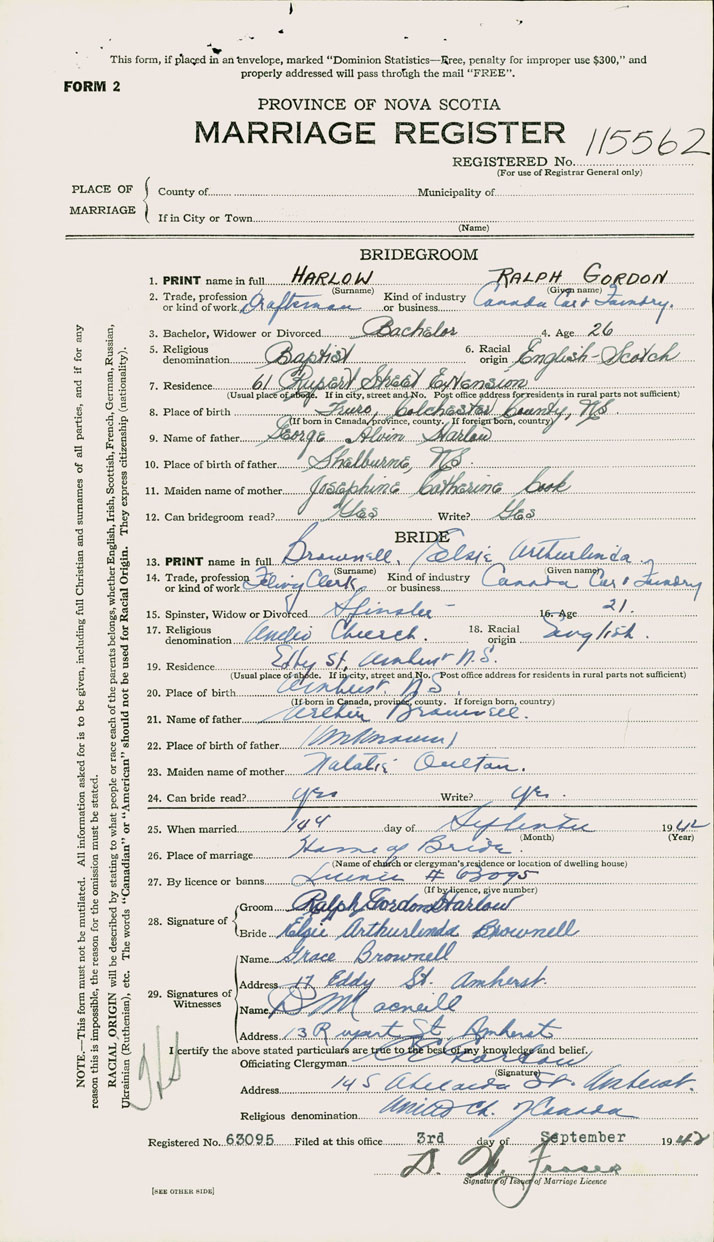 This form, if placed in an envelope, marked "Dominion Statistics—Free, penalty for improper use $300," and
properly addressed will pass through the mail "FREE".
FORM 2
PROVINCE OF NOVA SCOTIA
MARRIAGE REGISTER
115562
REGISTERED No.
(For use of Registrar General only)
PLACE OF MARRIAGE
County of
Municipality of
If in City or Town
(Name)
BRIDEGROOM
1. PRINT name in full HARLOW RALPH GORDON
(Surname) (Given name)
2. Trade, profession or kind of work Draftsman Kind of industry or business Canada Car & Foundry.
3. Bachelor, Widower or Divorced Bachelor 4. Age 26
5. Religious denomination Baptist 6. Racial origin English-Scotch
7. Residence 61 Rupert Street Extension
(Usual place of abode. If in city, street and No. Post office address for residents in rural parts not sufficient)
8. Place of birth Truro, Colchester County, NS.
(If born in Canada, province, county. If foreign born, country)
9. Name of father George Alvin Harlow
10. Place of birth of father Shelburne, NS.
11. Maiden name of mother Josephine Catherine Cook
12. Can bridegroom read? Yes Write? Yes
BRIDE
13. PRINT name in full Brownell, Elsie Arthurlinda
(Surname) (Given name)
14. Trade, profession or kind of work Clerk Kind of industry or business Canada Car & Foundry
15. Spinster, Widow or Divorced Spinster 16. Age 21.
17. Religious denomination Church. 18. Racial origin English.
19. Residence Eddy St, Amherst N.S.
(Usual place of abode. If in city, street and No. Post office address for residents in rural parts not sufficient)
20. Place of birth Amherst N.S.
(If born in Canada, province, county. If foreign born, country)
21. Name of father Arthur Brownell.
22. Place of birth of father (Unknown)
23. Maiden name of mother Natalie Oulton.
24. Can bride read? yes Write? yes.
25. When married day of September 1942
(Month) (Year)
26. Place of marriage Home of Bride.
(Name of church or clergyman's residence or location of dwelling house)
27. By licence or banns License # 63095
(If by licence, give number)
28. Signature of
Groom Ralph Gordon Harlow
Bride Elsie Arthurlinda Brownell
29. Signatures of Witnesses
Name Grace Brownell
Address 17 Eddy St. Amherst.
Name D Macneill
Address 13 Rupert St, Amherst
I certify the above stated particulars are true to the best of my knowledge and belief.
Officiating Clergyman
(Signature)
Address 145 Adelaide St. Amherst.
Religious denomination United Ch. of Canada
Registered No. 63095 Filed at this office 3rd day of September 1942
D. W. Fraser
Signature of Issuer of Marriage Licence
[SEE OTHER SIDE]
NOTE.—This form must not be mutilated. All information asked for is to be given, including full Christian and surnames of all parties, and if for any
reason this is impossible, the reason for the omission must be stated.
RACIAL ORIGIN will be described by stating to what people or race each of the parents belongs, whether English, Irish, Scottish, French, German, Russian,
Ukrainian (Ruthenian), etc. The words "Canadian" or "American" should not be used for Racial Origin. They express citizenship (nationality).